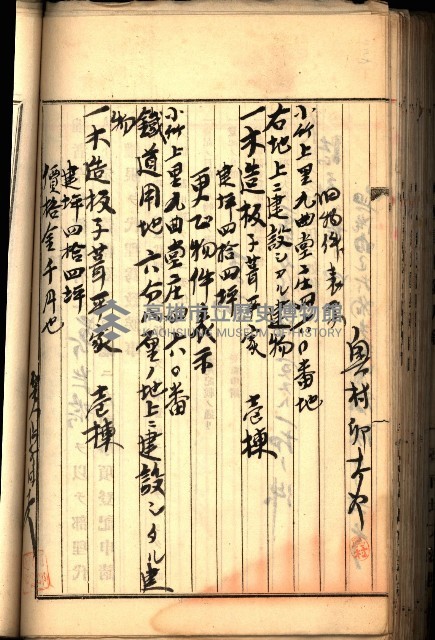 奥村卯吉
旧物件表示
小竹上里九曲堂庄四六〇番地
右地上ニ建設シタル建物
一木造板子葺平家 壱棟
建坪四拾四坪
更正物件表示
小竹上里九曲堂庄四六〇番
鐵道用地六分厘ノ地上ニ建設シタル建
物
一木造板子葺平家 壱棟
建坪四拾四坪
價格金千円也
高雄市立歷史博物館
KAOHSIUNG MUSEUM OF HISTORY